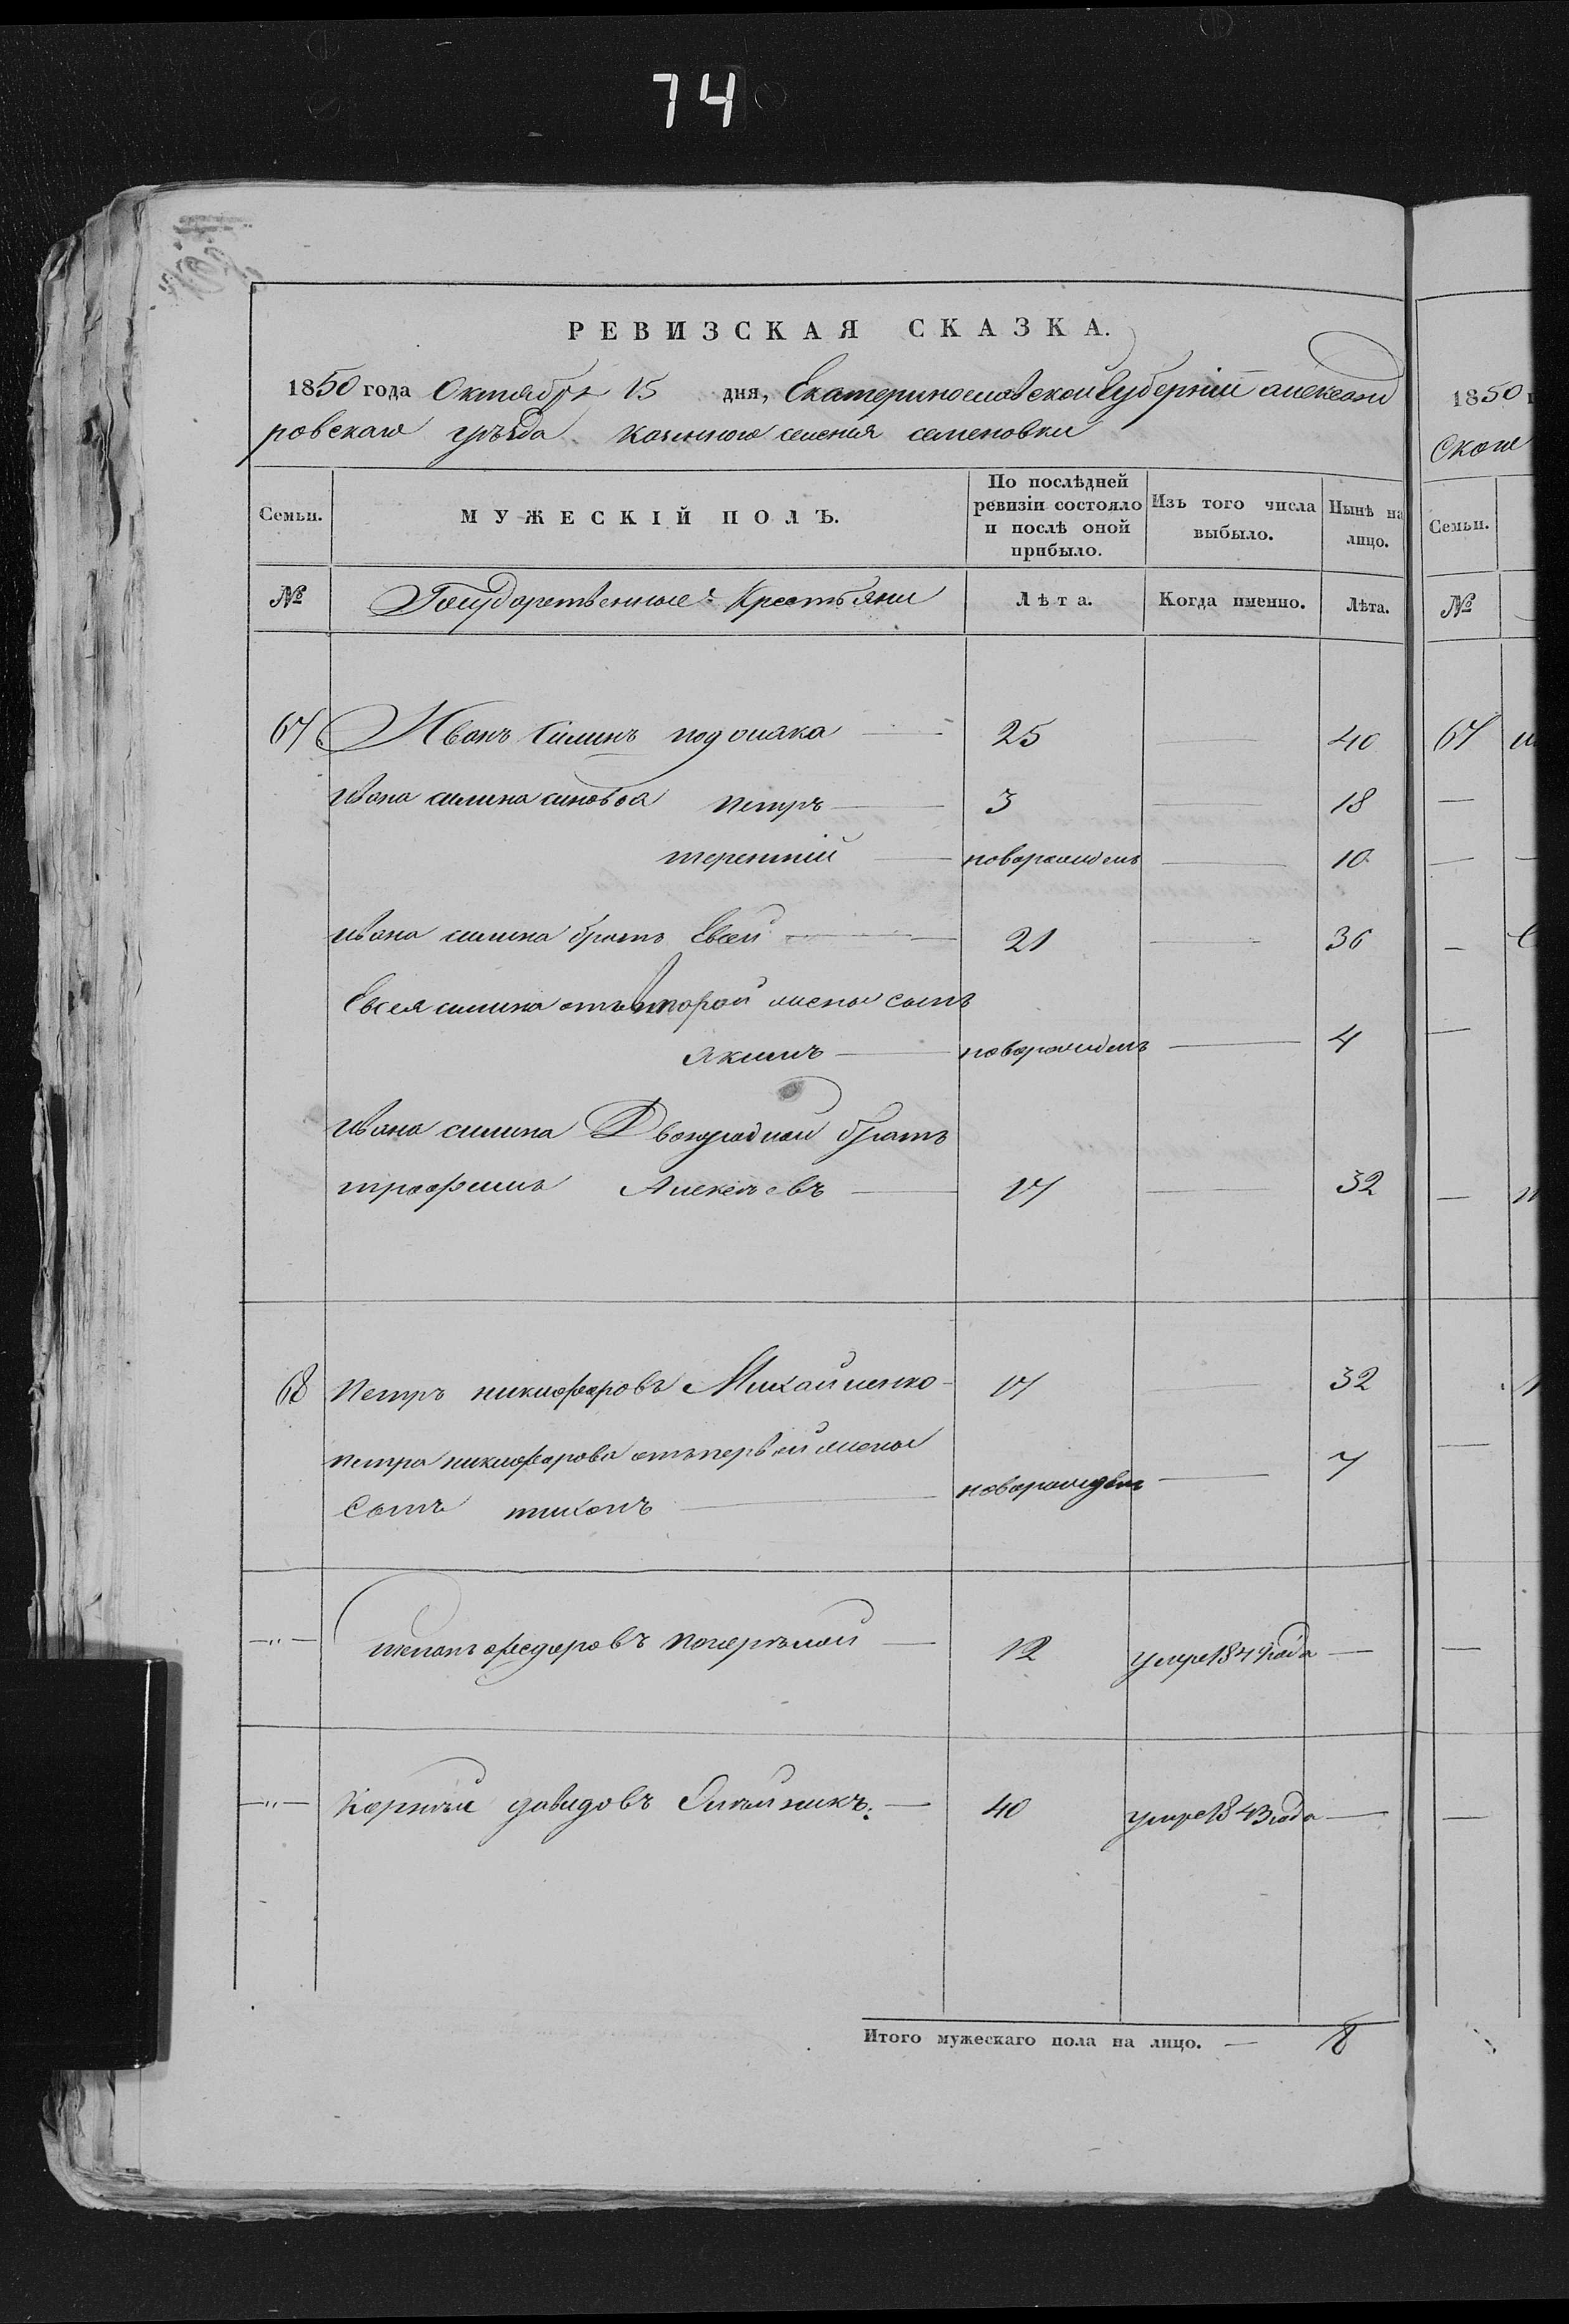 74
РЕВИЗСКАЯ СКАЗКА.
1850 года Октября 15 дня, Екатеринославской Губерніи александ
ровскаго уѣзда казенного селения семеновки
Семьи.
МУЖЕСКІЙ ПОЛЪ.
По послѣдней ревизіи состояло и послѣ оной прибыло.
Изъ того числа выбыло.
Нынѣ на лицо.
№ Государственные Крестьяни Лѣта. Когда именно. Лѣта.
67 Иванъ Силинъ 25 40
ивана силина синовья петръ 3 18
терентій новорожденъ 10
ивана силина братъ Евсей 21 36
Евсея силина отъ второй жены сынъ
якимъ новорожденъ 4
ивана силина Двоюродной братъ
трофимъ Алексѣевъ 17 32
68 петръ никифоровъ Михайленко 17 32
петра никифорова отъ первой жены
сынъ тихонъ новорожденъ 7
федоровъ 12 умре 184 года
давидовъ Олѣйникъ. 40 умре 1843 года
Итого мужескаго пола на лицо. 8
1850
Семьи.
№
67